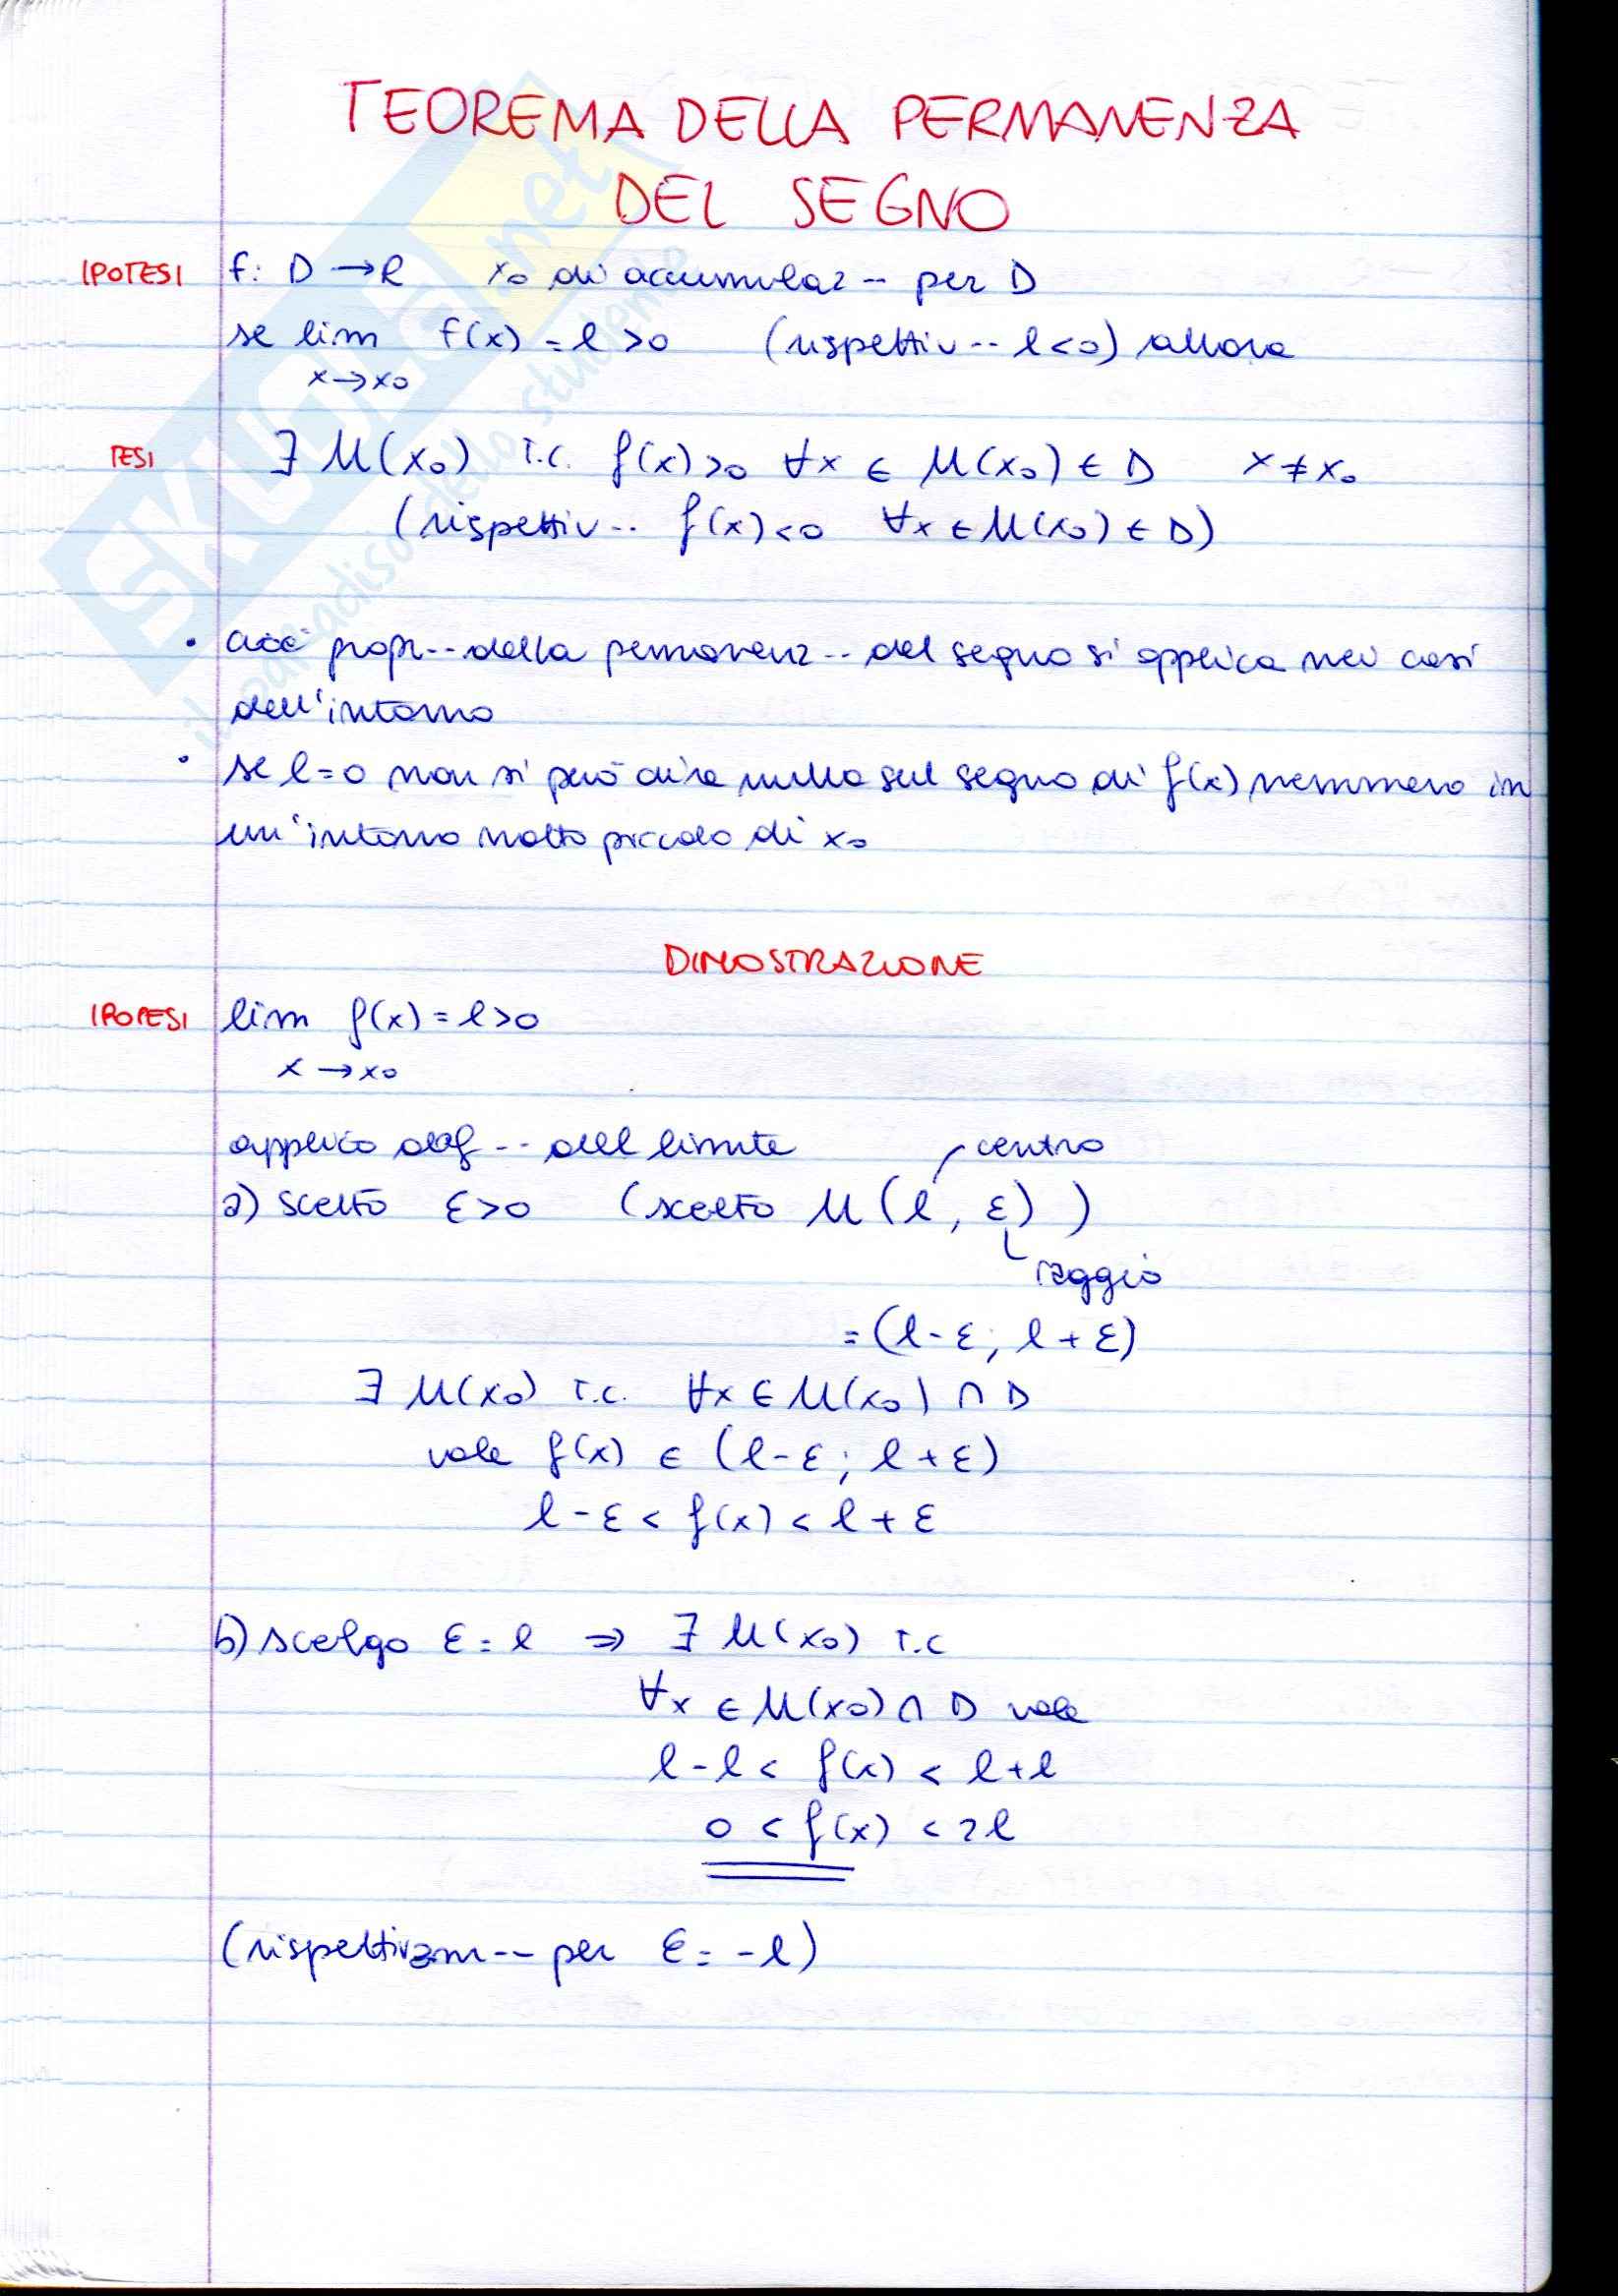 TEOREMA DELLA PERMANENZA
DEL SEGNO
IPOTESI f: D → R x₀ di accumulaz-- per D
se lim f(x) = l >0 (rispettiv-- l<0) allora
x→x₀
TESI ∃ U(x₀) T.C. f(x)>0 ∀x ∈ U(x₀) ∈ D x≠x₀
(rispettiv-- f(x)<0 ∀x ∈ U(x₀) ∈ D)
• cioè propr-- della permanenz-- del segno si applica nei casi
dell'intorno
• se l=0 non si può dire nulla sul segno di f(x) nemmeno in
un'intorno molto piccolo di x₀
DIMOSTRAZIONE
IPOTESI lim f(x) = l>0
x→x₀
applico def-- dell limite centro
a) scelto ε>0 (scelto U(l, ε) )
raggio
= (l-ε; l+ε)
∃ U(x₀) T.C. ∀x ∈ U(x₀) ∩ D
vale f(x) ∈ (l-ε; l+ε)
l-ε < f(x) < l+ε
b) scelgo ε=l ⇒ ∃ U(x₀) T.C
∀x ∈ U(x₀) ∩ D vale
l-l < f(x) < l+l
0 < f(x) < 2l
(rispettivam-- per ε=-l)
SKUOLA.net
il paradiso dello studente